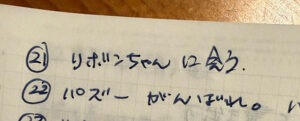 ㉑ リボンちゃんに会う.
㉒ パズー がんばれ。